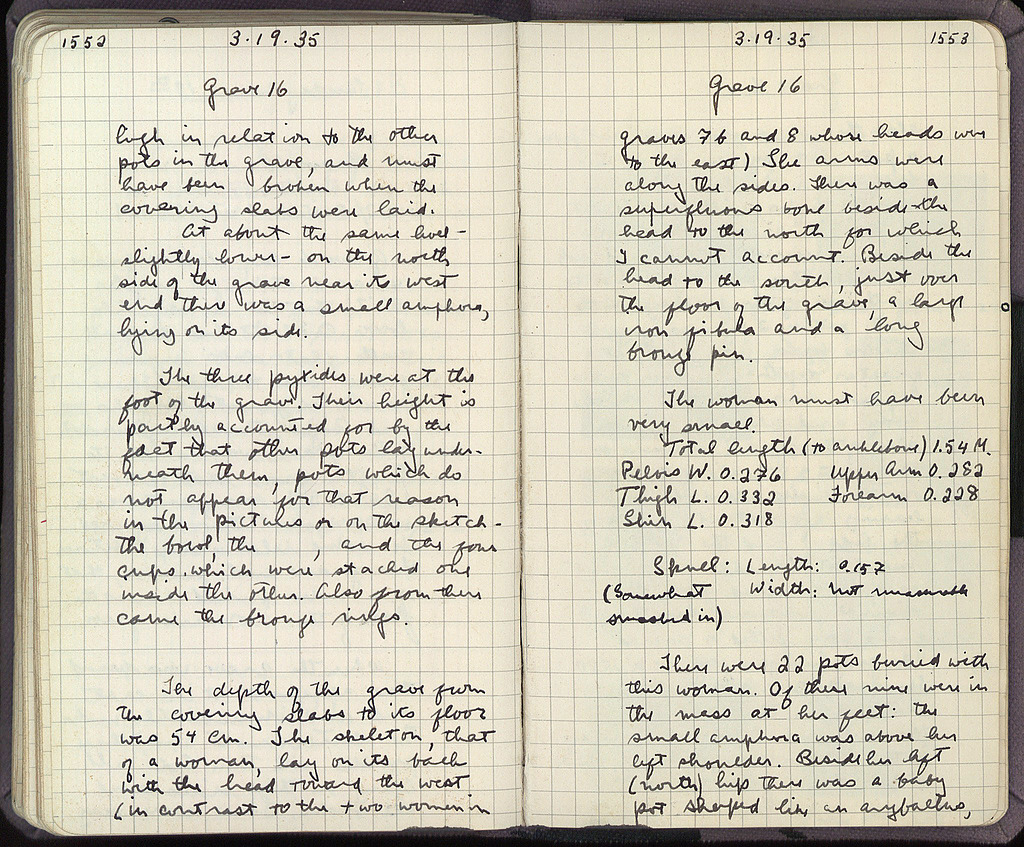 1552
3.19.35
Grave 16
high in relation to the other
pots in the grave, and must
have been broken when the
covering slabs were laid.
At about the same level -
slightly lower - on the north
side of the grave near its west
end there was a small amphora,
lying on its side.
The three pyxides were at the
foot of the grave. Their height is
partly accounted for by the
fact that other pots lay under-
neath them, pots which do
not appear for that reason
in the pictures or on the sketch -
the bowl, the , and the four
cups which were stacked one
inside the other. Also from there
came the bronze rings.
The depth of the grave from
the covering slabs to its floor
was 54 cm. The skeleton, that
of a woman, lay on its back
with the head toward the west
(in contrast to the two women in
3.19.35
1553
Grave 16
graves 7b and 8 whose heads were
to the east) The arms were
along the sides. There was a
superfluous bone beside the
head to the north for which
I cannot account. Beside the
head to the south, just over
the floor of the grave, a large
iron fibula and a long
bronze pin.
The woman must have been
very small.
Total length (to anklebone) 1.54 M.
Pelvis W. 0.276 Upper Arm 0.282
Thigh L. 0.332 Forearm 0.228
Shin L. 0.318
Skull: Length: 0.157
(Somewhat Width: not measurable
smashed in)
There were 22 pots buried with
this woman. Of these nine were in
the mass at her feet: the
small amphora was above her
left shoulder. Beside her left
(north) hip there was a baby
pot shaped like an aryballos,